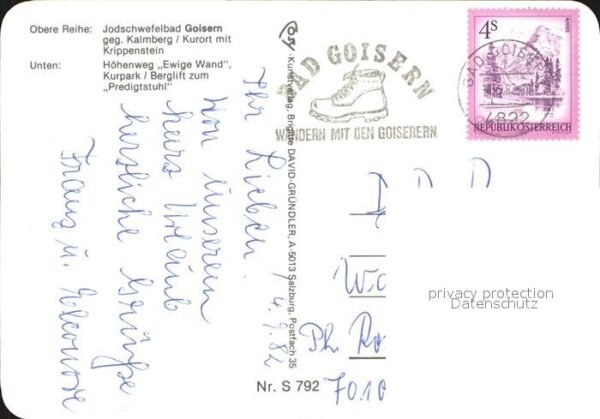 Obere Reihe: Jodschwefelbad Goisern
geg. Kalmberg / Kurort mit
Krippenstein
Unten: Höhenweg „Ewige Wand",
Kurpark / Berglift zum
„Predigtstuhl"
Cosy - Kunstverlag, Brigitte DAVID-GRÜNDLER, A-5013 Salzburg, Postfach 35
BAD GOISERN
WANDERN MIT DEN GOISERERN
BAD GOISERN
4822
4S
REPUBLIK ÖSTERREICH
Ihr Lieben! 4.9.82
Von unserem
kurz Urlaub
herzliche Grüße
Franz u. Eleonore
Ph. Ro
7010
privacy protection
Datenschutz
Nr. S 792